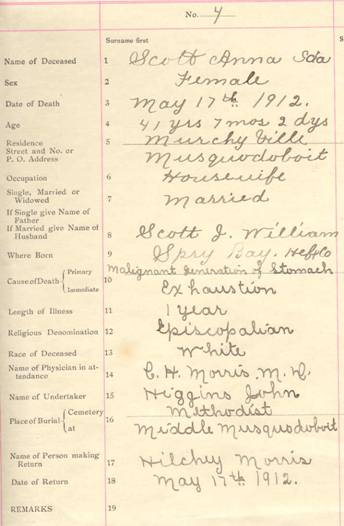 No. 4
Surname first
Name of Deceased 1 Scott Anna Ida
Sex 2 Female
Date of Death 3 May 17th 1912.
Age 4 41 yrs 7 mos 2 dys
Residence Street and No. or P. O. Address 5 Murchy Ville
Musquodoboit
Occupation 6 Housewife
Single, Married or Widowed 7 Married
If Single give Name of Father
If Married give Name of Husband 8 Scott J. William
Where Born 9 Spry Bay. Hfx Co
Cause of Death { Primary 10 Malignant Generation of Stomach
Immediate Exhaustion
Length of Illness 11 1 year
Religious Denomination 12 Episcopalian
Race of Deceased 13 White
Name of Physician in attendance 14 C. H. Morris M. D.
Name of Undertaker 15 Higgins John
Place of Burial { Cemetery 16 Methodist
at Middle Musquodoboit
Name of Person making Return 17 Hilchey Morris
Date of Return 18 May 17th 1912.
REMARKS 19